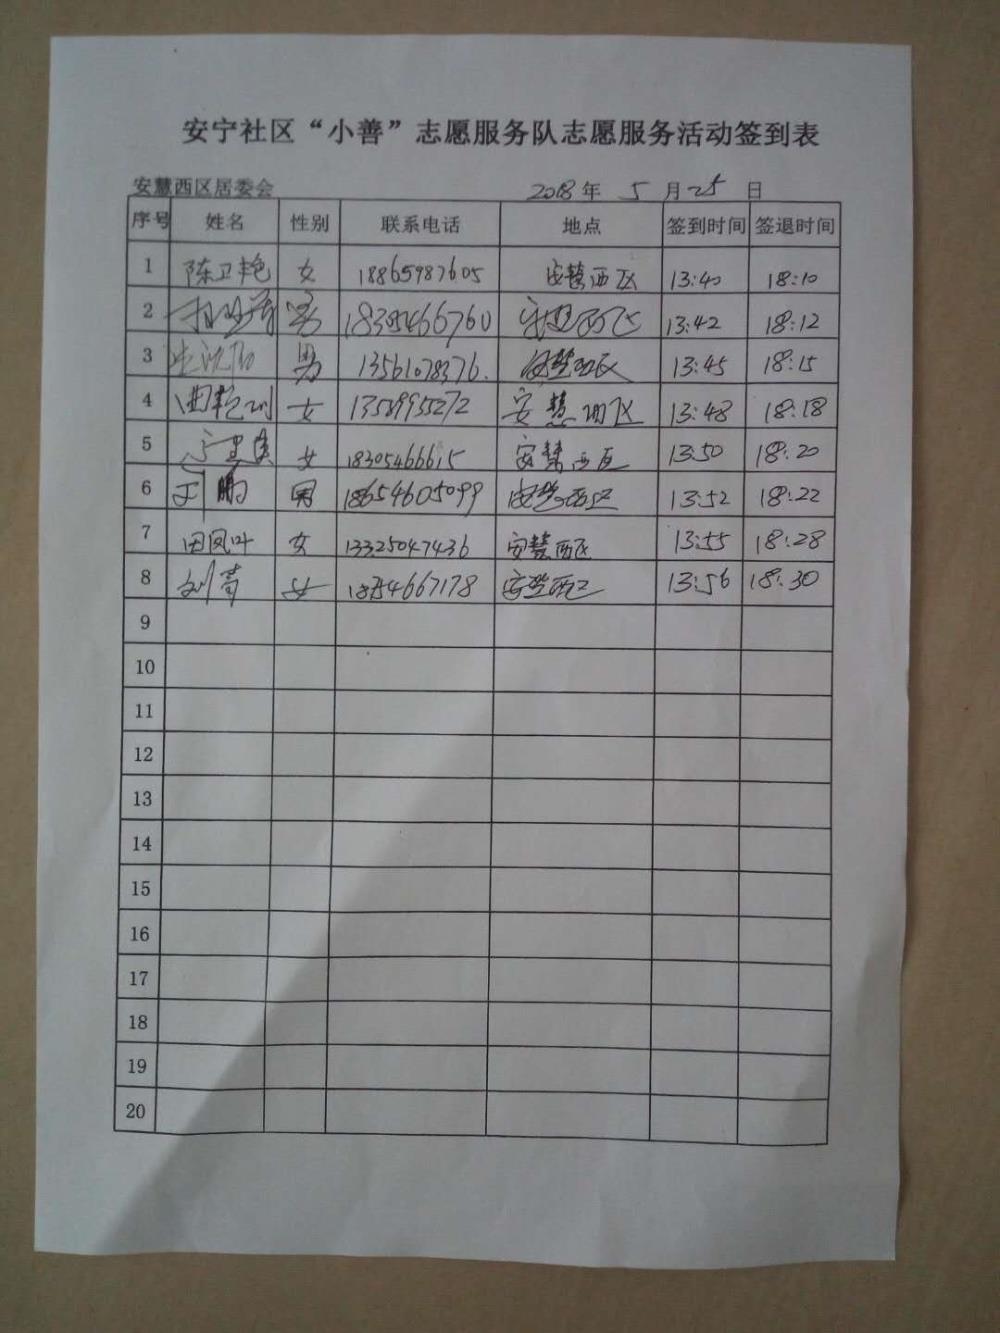 安宁社区“小善”志愿服务队志愿服务活动签到表
安慧西区居委会 2018年 5月25日
序号 姓名 性别 联系电话 地点 签到时间 签退时间
1 陈卫艳 女 18865987605 安慧西区 13:40 18:10
2 男 18305466760 安慧西区 13:42 18:12
3 男 13561078376. 安慧西区 13:45 18:15
4 女 13589955272 安慧西区 13:48 18:18
5 女 18305466615 安慧西区 13:50 18:20
6 王鹏 男 18654605099 安慧西区 13:52 18:22
7 田凤叶 女 13325047436 安慧西区 13:55 18:28
8 刘菁 女 安慧西区 13:56 18:30
9
10
11
12
13
14
15
16
17
18
19
20